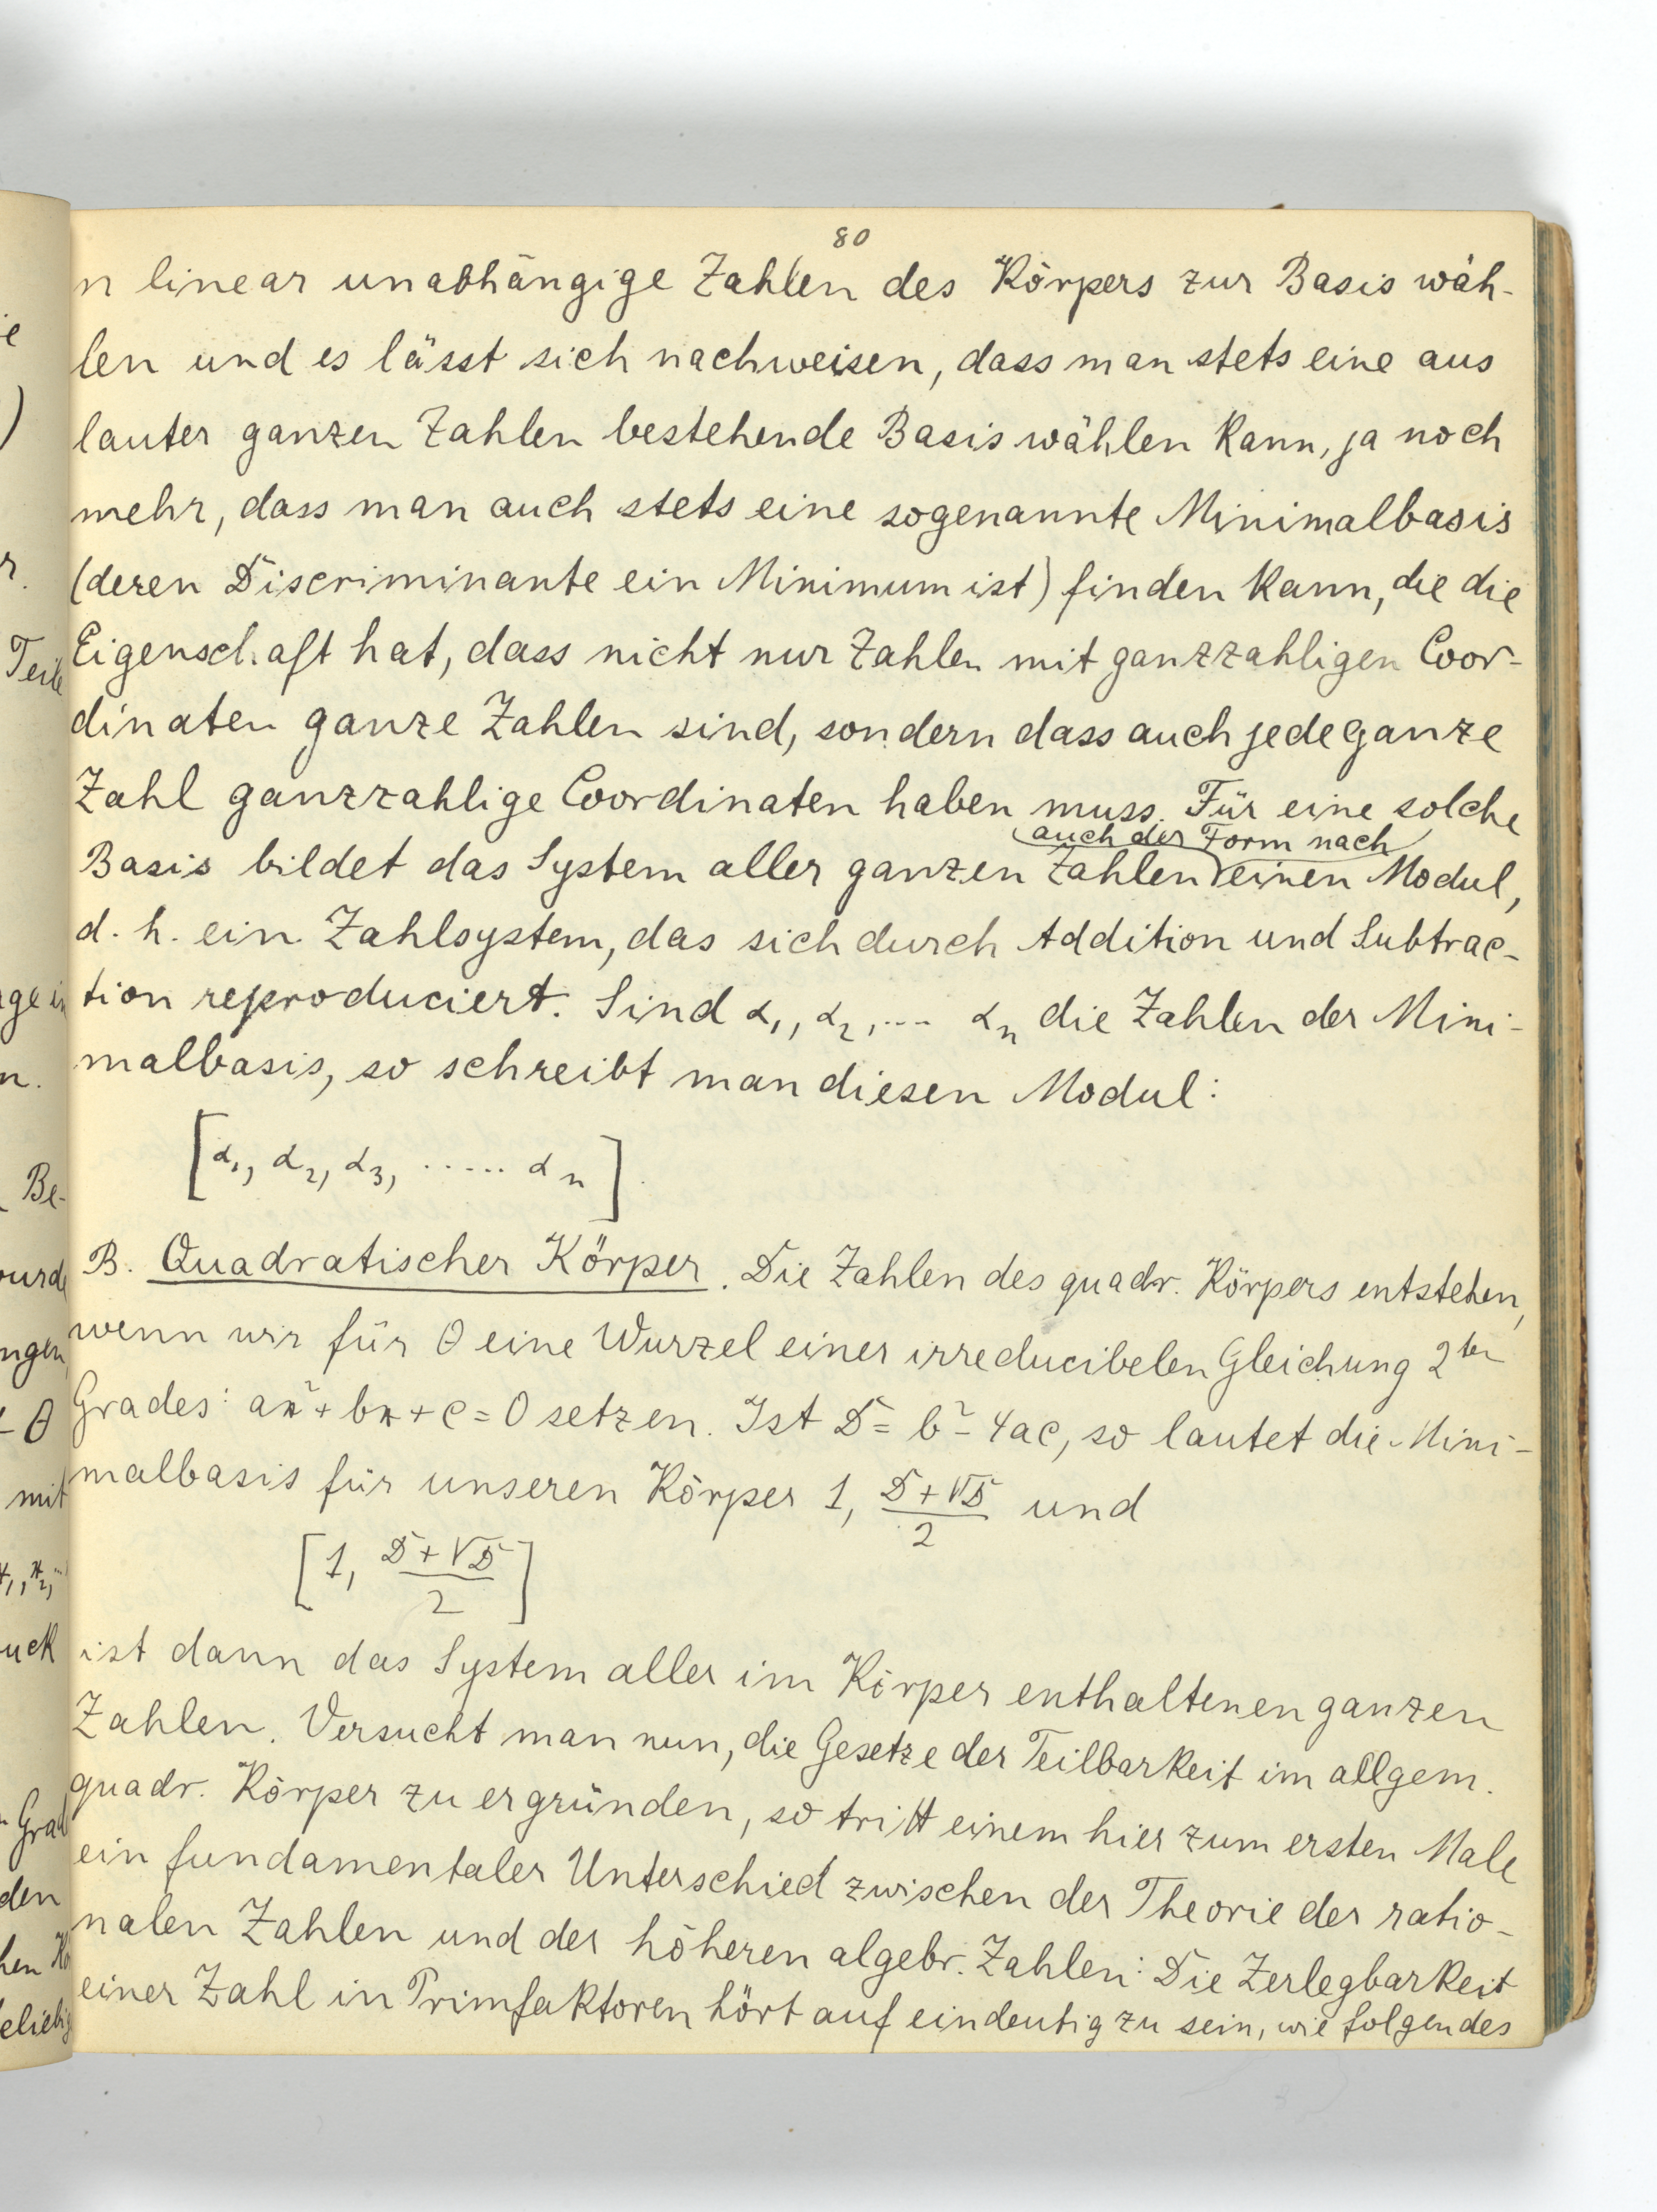 80
n linear unabhängige Zahlen des Körpers zur Basis wäh-
len und es lässt sich nachweisen, dass man stets eine aus
lauter ganzen Zahlen bestehende Basis wählen kann, ja noch
mehr, dass man auch stets eine sogenannte Minimalbasis
(deren Discriminante ein Minimum ist) finden kann, die die
Eigenschaft hat, dass nicht nur Zahlen mit ganzzahligen Coor-
dinaten ganze Zahlen sind, sondern dass auch jede ganze
Zahl ganzzahlige Coordinaten haben muss. Für eine solche
auch der Form nach
Basis bildet das System aller ganzen Zahlen einen Modul,
d. h. ein Zahlsystem, das sich durch Addition und Subtrac-
tion reproduciert. Sind α₁, α₂, .... αₙ die Zahlen der Mini-
malbasis, so schreibt man diesen Modul:
[α₁, α₂, α₃, ...... αₙ].
B. Quadratischer Körper. Die Zahlen des quadr. Körpers entstehen,
wenn wir für θ eine Wurzel einer irreducibelen Gleichung 2ten
Grades: ax² + bx + c = 0 setzen. Ist D = b² - 4ac, so lautet die Mini-
malbasis für unseren Körper 1, (D+√D)/2 und
[1, (D+√D)/2]
ist dann das System aller im Körper enthaltenen ganzen
Zahlen. Versucht man nun, die Gesetze der Teilbarkeit im allgem.
quadr. Körper zu ergründen, so tritt einem hier zum ersten Male
ein fundamentaler Unterschied zwischen der Theorie der ratio-
nalen Zahlen und der höheren algebr. Zahlen: Die Zerlegbarkeit
einer Zahl in Primfaktoren hört auf eindeutig zu sein, wie folgendes